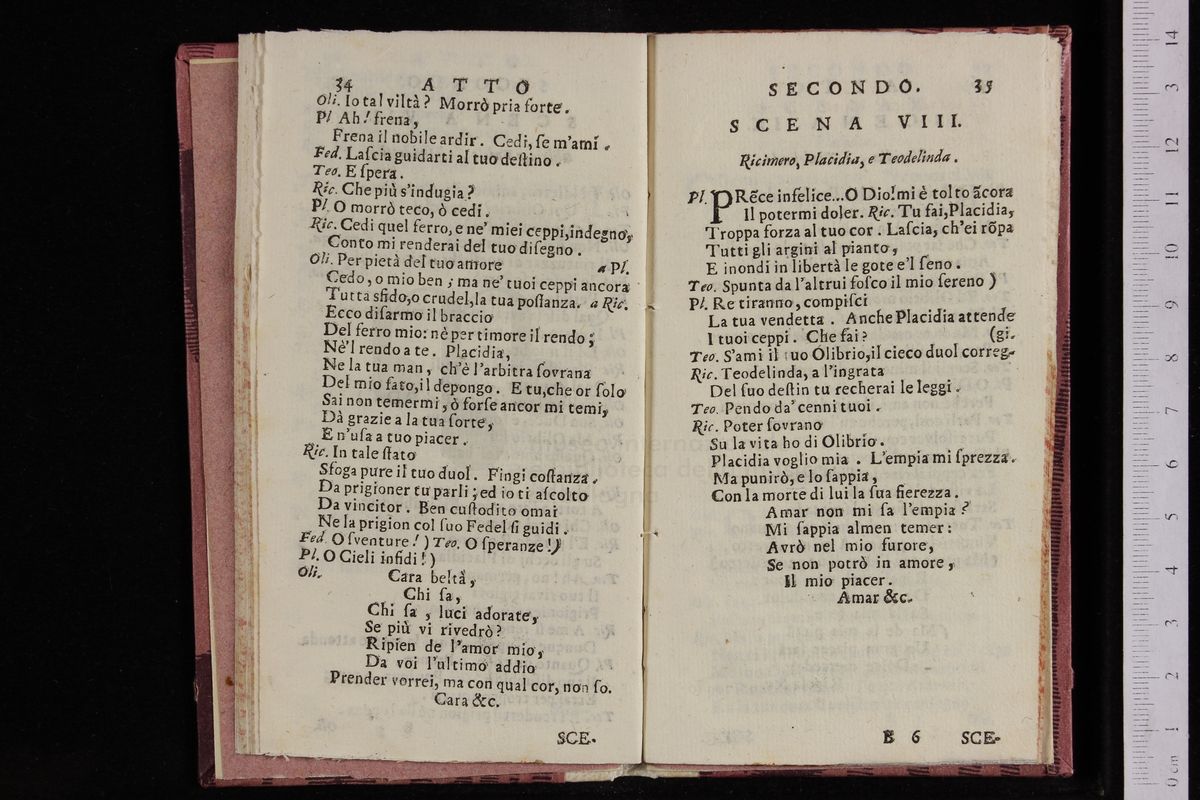 34 ATTO
Oli. Io tal viltà? Morrò pria forte.
Pl Ah! frena,
Frena il nobile ardir. Cedi, ſe m'ami.
Fed. Laſcia guidarti al tuo deſtino.
Teo. E ſpera.
Ric. Che più s'indugia?
Pl. O morrò teco, ò cedi.
Ric. Cedi quel ferro, e ne' miei ceppi, indegno,
Conto mi renderai del tuo diſegno.
Oli. Per pietà del tuo amore a Pl.
Cedo, o mio ben; ma ne' tuoi ceppi ancora
Tutta sfido, o crudel, la tua poſſanza. a Ric.
Ecco diſarmo il braccio
Del ferro mio: nè per timore il rendo;
Nè'l rendo a te. Placidia,
Ne la tua man, ch'è l'arbitra ſovrana
Del mio fato, il depongo. E tu, che or ſolo
Sai non temermi, ò forſe ancor mi temi,
Dà grazie a la tua ſorte,
E n'uſa a tuo piacer.
Ric. In tale ſtato
Sfoga pure il tuo duol. Fingi coſtanza.
Da prigioner tu parli; ed io ti aſcolto
Da vincitor. Ben cuſtodito omai
Ne la prigion col ſuo Fedel ſi guidi.
Fed. O ſventure!) Teo. O ſperanze!)
Pl. O Cieli infidi!)
Oli. Cara beltà,
Chi ſa,
Chi ſa, luci adorate,
Se più vi rivedrò?
Ripien de l'amor mio,
Da voi l'ultimo addio
Prender vorrei, ma con qual cor, non ſo.
Cara &c.
SCE-
SECONDO. 35
SCENA VIII.
Ricimero, Placidia, e Teodelinda.
Pl. PRẽce infelice...O Dio! mi è tolto ãcora
Il potermi doler. Ric. Tu fai, Placidia,
Troppa forza al tuo cor. Laſcia, ch'ei rõpa
Tutti gli argini al pianto,
E inondi in libertà le gote e'l ſeno.
Teo. Spunta da l'altrui foſco il mio ſereno)
Pl. Re tiranno, compiſci
La tua vendetta. Anche Placidia attende
I tuoi ceppi. Che fai? (gi.
Teo. S'ami il tuo Olibrio, il cieco duol correg-
Ric. Teodelinda, a l'ingrata
Del ſuo deſtin tu recherai le leggi.
Teo. Pendo da' cenni tuoi.
Ric. Poter ſovrano
Su la vita ho di Olibrio.
Placidia voglio mia. L'empia mi ſprezza.
Ma punirò, e lo ſappia,
Con la morte di lui la ſua fierezza.
Amar non mi ſa l'empia?
Mi ſappia almen temer:
Avrò nel mio furore,
Se non potrò in amore,
Il mio piacer.
Amar &c.
B 6 SCE-